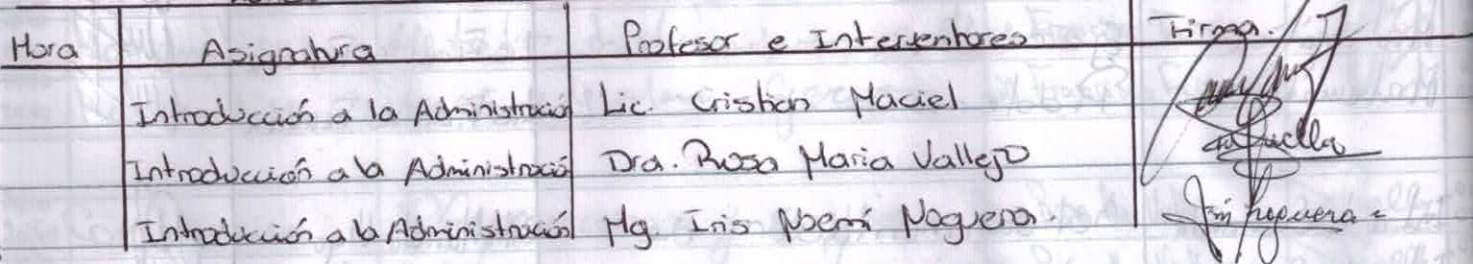 Hora Asignatura Profesor e Interventores Firma.
Introducción a la Administración Lic. Cristian Maciel
Introducción a la Administració Dra. Rosa Maria Vallejo
Introducción a la Administración Mg. Iris Noemí Noguera.